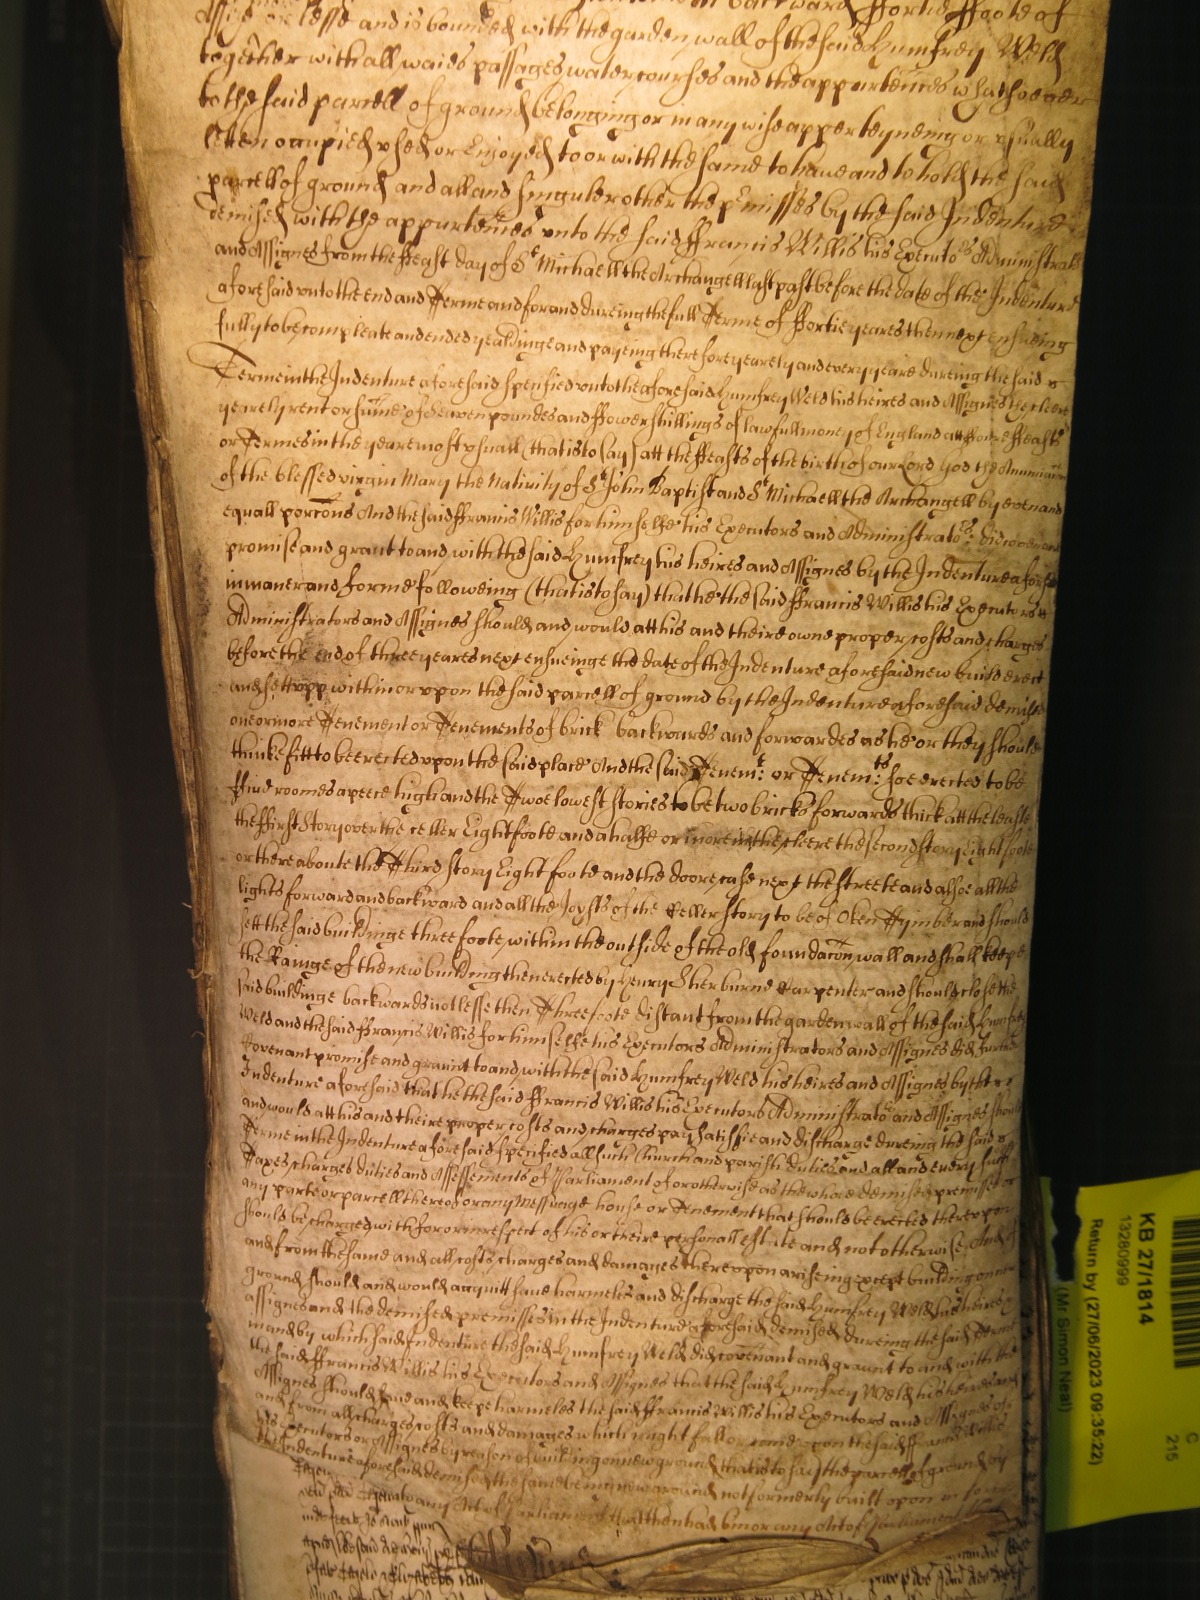 backward ffortie ffoote of
Assize or lesse and is bounded with the garden wall of the said Humfrey Weld
together with all waies passages watercourses and the appurtences whatsoever
to the said parcell of ground belonging or in any wise apperteyneing or usually
letten occupied used or Enjoyed to or with the same to have and to hold the said
parcell of ground and all and singuler other the p'misses by the said Indenture
demised with the appurtences unto the said ffrancis Willis his Executors Administrat
and Assignes from the ffeast day of St Michaell the Archangell last past before the date of the Indenture
aforesaid unto the end and Terme and for and dureing the full Terme of ffortie yeares then next ensueing
fully to be compleate and ended yealdinge and payeing therefore yearely and every yeare dureing the said
Terme in the Indenture aforesaid specified unto the aforesaid Humfrey Weld his heires and Assignes the cleere
yearely rent or sume of Seaven poundes and ffower shillings of lawfull money of England att ffower ffeasts
or Termes in the yeare most usuall (that is to say) att the ffeasts of the birth of our Lord God the Annunciacon
of the blessed virgin Mary the Nativity of St John Baptist and St Michaell the Archangell by even and
equall porcons And the said ffrancis Willis for himselfe his Executors and Administrators did covenant
promise and grant to and with the said Humfrey his heires and Assignes by the Indenture afores
in maner and forme followeing (that is to say) that he the said ffrancis Willis his Executors
Administrators and Assignes should and would att his and theire owne proper costs and charges
before the end of three yeares next ensueinge the date of the Indenture aforesaid new build erect
and sett upp within or upon the said parcell of ground by the Indenture aforesaid demised
one or more Tenement or Tenements of brick backwards and forwardes as he or they should
thinke fitt to be erected upon the said place And the said Tenemt: or Tenemts: soe erected to be
Third roomes apeece high and the Twoe lowest stories to be two bricks forwards thick att the leaste
the ffirst Story over the celler Eight foote and a halfe or more in the cleere the second story Eight foote
or there aboute the Third story Eight foote and the doore case next the streete and alsoe all the
lights forward and backward and all the Joysts of the Celler story to be of Oken Tymber and should
sett the said buildinge three foote within the outside of the old foundacon wall and shall keepe
the Rainge of the new building then erected by Henry Sherburne Carpenter and should close the
said buildinge backwards not lesse then Three foote distant from the garden wall of the said Humfrey
Weld and the said ffrancis Willis for himselfe his Executors Administrators and Assignes did further
Covenant promise and graunt to and with the said Humfrey Weld his heires and Assignes by the
Indenture aforesaid that he the said ffrancis Willis his Executors Administrators and Assignes should
and would att his and theire proper costs and charges pay satisfie and discharge dureing the said
Terme in the Indenture aforesaid specified all such Church and parish duties and all and every such
Taxes charges duties and Assessements of Parliament or otherwise as the whole demised premisses or
any parte or parcell thereof or any Messuage house or Tenement that should be erected thereupon
should be charged with for or in respect of his or theire personall estate and not otherwise And of
and from the same and all costs charges and damages thereupon ariseing except building on new
ground should and would acquitt save harmeles and discharge the said Humfrey Weld his heires
assignes and the demised premisses in the Indenture aforesaid demised dureing the said Terme
and by which said Indenture the said Humfrey Weld did covenant and graunt to and with the
the said ffrancis Willis his Executors and Assignes that the said Humfrey Weld his heires and
Assignes should save and keepe harmeles the said ffrancis Willis his Executors and Assignes of
and from all charges costs and damages which might fall or come upon the said ffrancis Willis
his Executors or Assignes by reason of building on new ground that is to say the parcell of ground by
the Indenture aforesaid demised the same being new ground not formerly built upon
any Act of Parliament that then had bin or any Act of Parliament
KB 27/1814
13280999
Return by (27/06/2023 09:35:22)
(Mr Simon Neal)
C
215